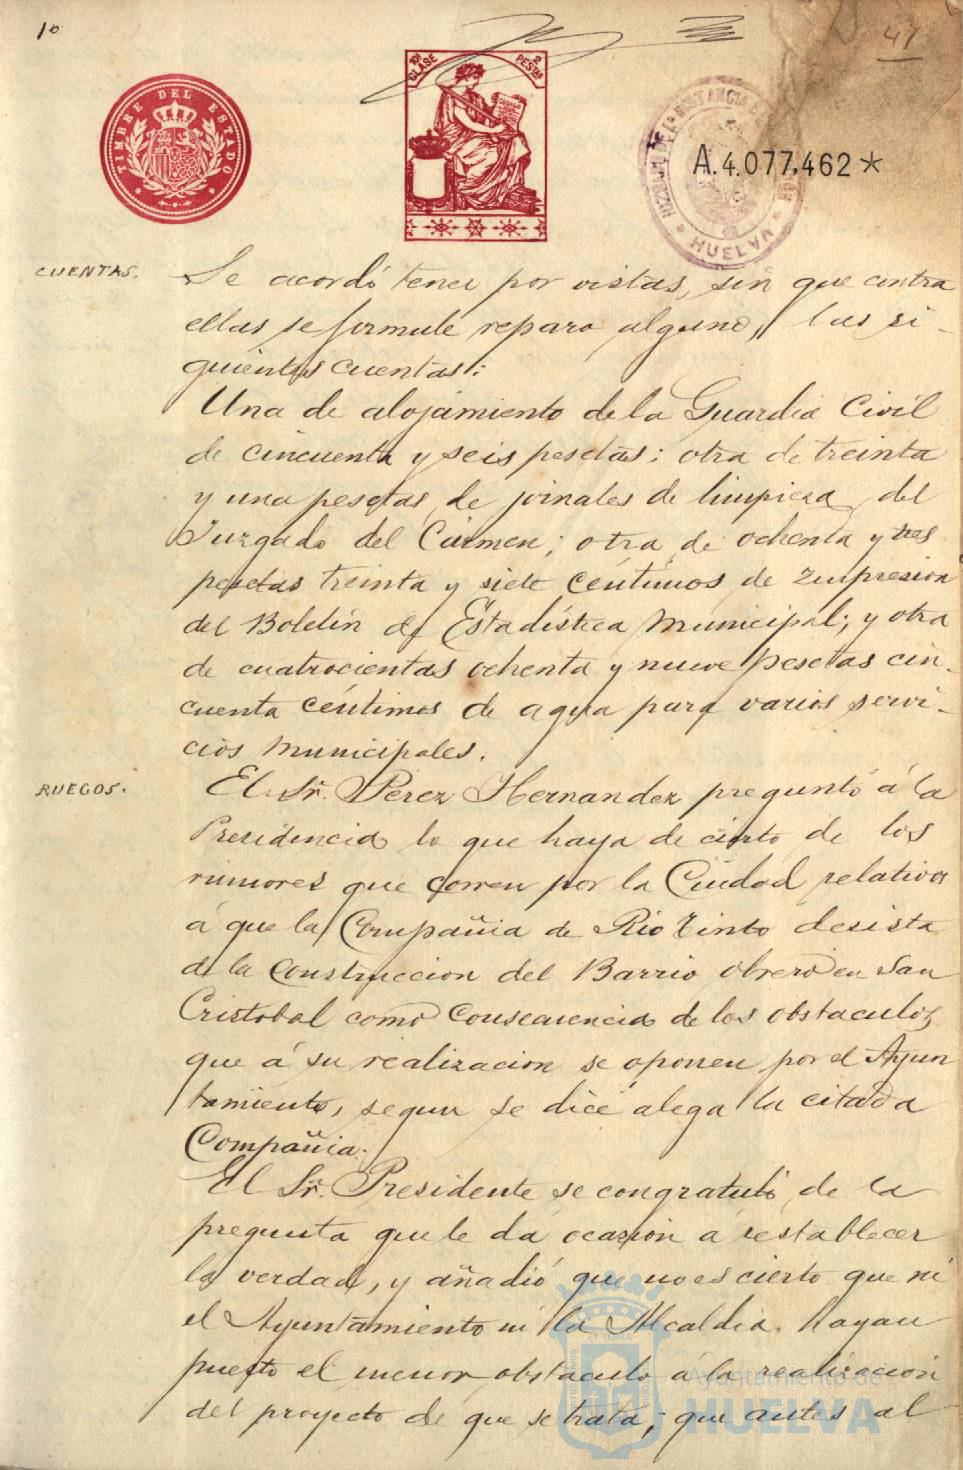 10
47
TIMBRE DEL ESTADO
10ª CLASE
2 PESTAS
A.4.077,462*
HUELVA
CUENTAS.
Se acordó tener por vistas, sin que contra
ellas se formule reparo alguno, las si-
guientes cuentas:
Una de alojamiento de la Guardia Civil
de cincuenta y seis pesetas; otra de treinta
y una pesetas, de jornales de limpieza del
Juzgado del Carmen; otra de ochenta y tres
pesetas treinta y siete céntimos de impresion
del Boletín de Estadística Municipal; y otra
de cuatrocientas ochenta y nueve pesetas cin-
cuenta céntimos de agua para varios servi-
cios municipales.
RUEGOS.
El Sr. Perez Hernandez preguntó á la
Presidencia lo que haya de cierto de los
rumores que corren por la Ciudad relativos
á que la Compañia de Rio Tinto desista
de la construccion del Barrio obrero en San
Cristobal como consecuencia de los obstaculos
que á su realizacion se oponen por el Ayun
tamiento, segun se dice alega la citada
Compañia.
El Sr. Presidente se congratuló de la
pregunta que le dá ocasión á restablecer
la verdad, y añadió que no es cierto que ni
el Ayuntamiento ni la Alcaldia hayan
puesto el menor obstaculo á la realizacion
del proyecto de que se trata; que antes al
Ayuntamiento de
HUELVA